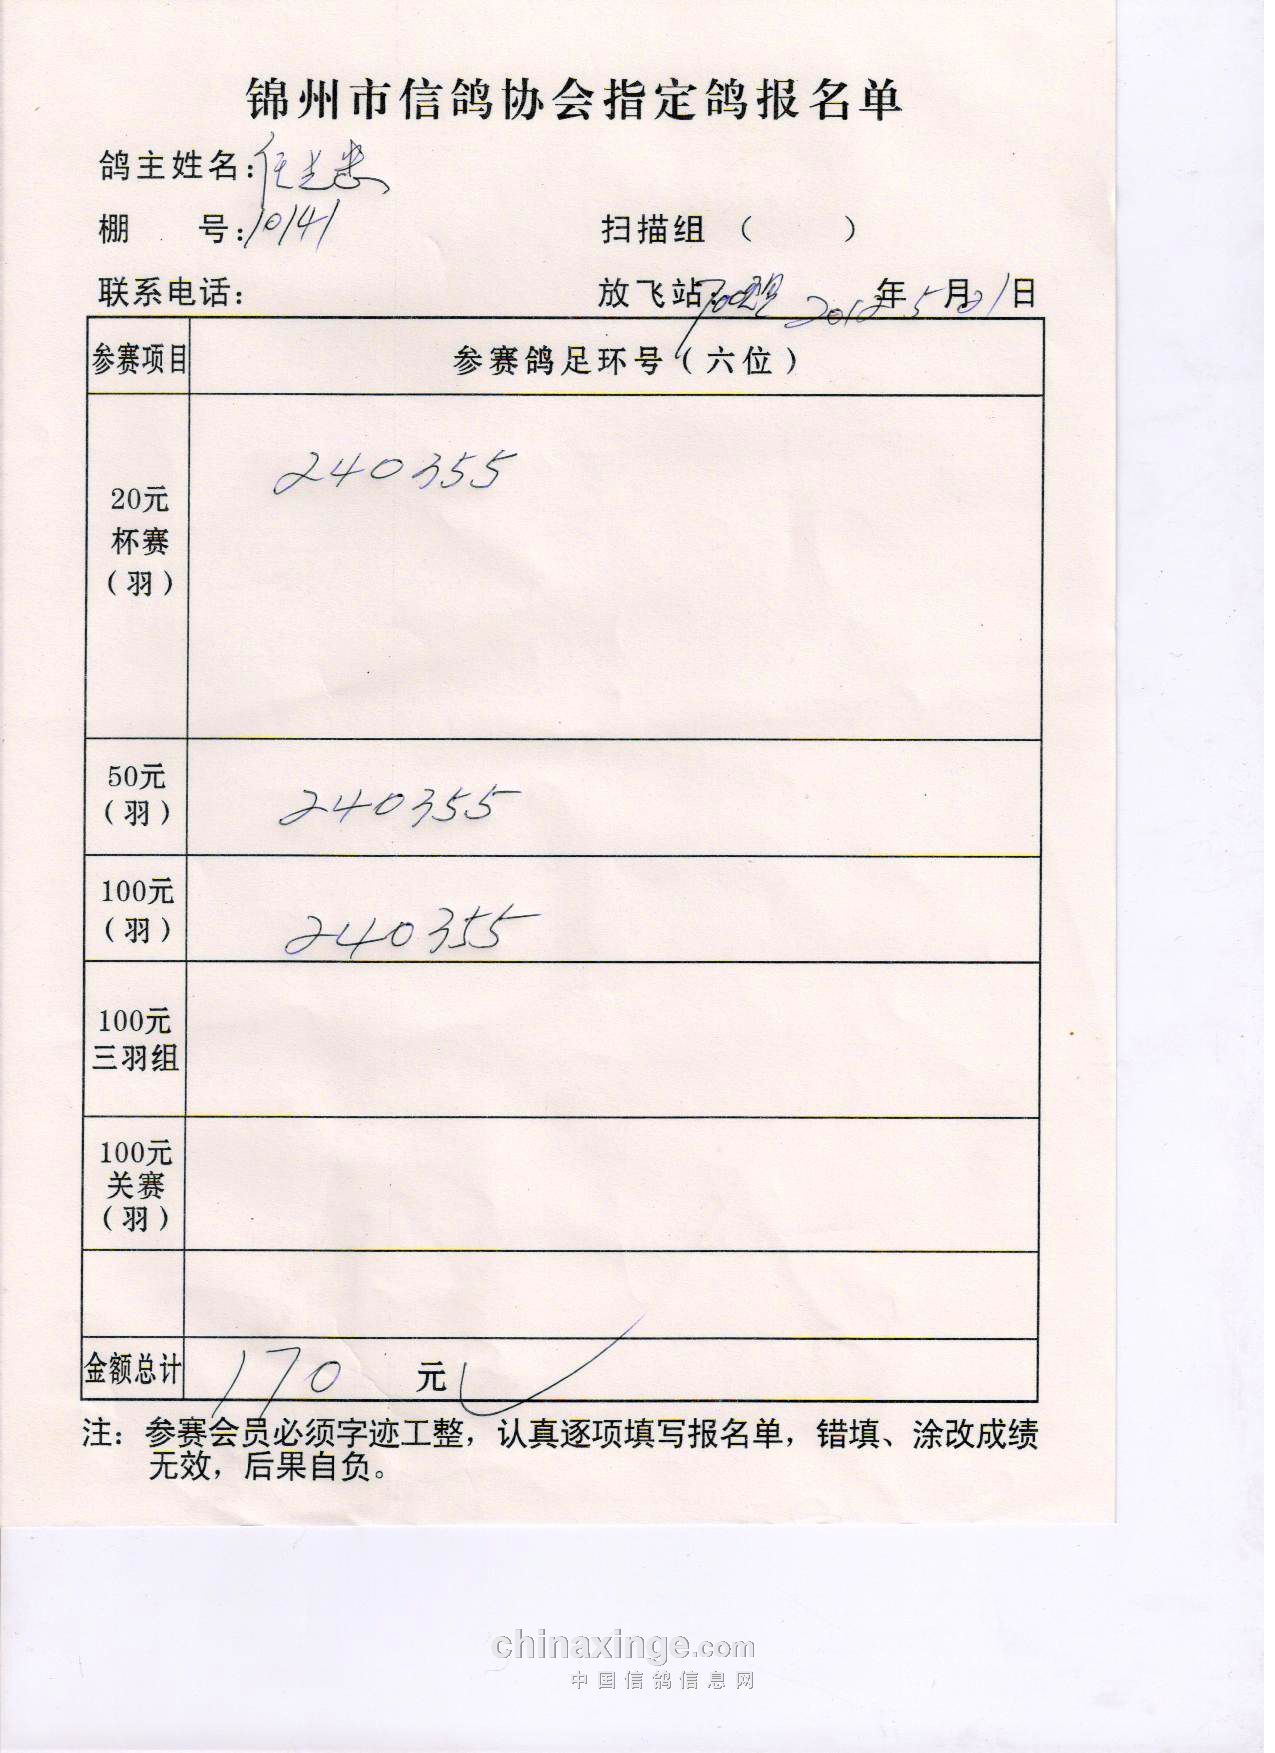 锦州市信鸽协会指定鸽报名单
鸽主姓名：任
棚 号：10141 扫描组（ ）
联系电话： 放飞站：700 2012年5月21日
参赛项目 参赛鸽足环号（六位）
20元
杯赛
（羽）
240355
50元
（羽）
240355
100元
（羽）
240355
100元
三羽组
100元
关赛
（羽）
金额总计 170 元
注：参赛会员必须字迹工整，认真逐项填写报名单，错填、涂改成绩
无效，后果自负。
chinaxinge.com
中国信鸽信息网